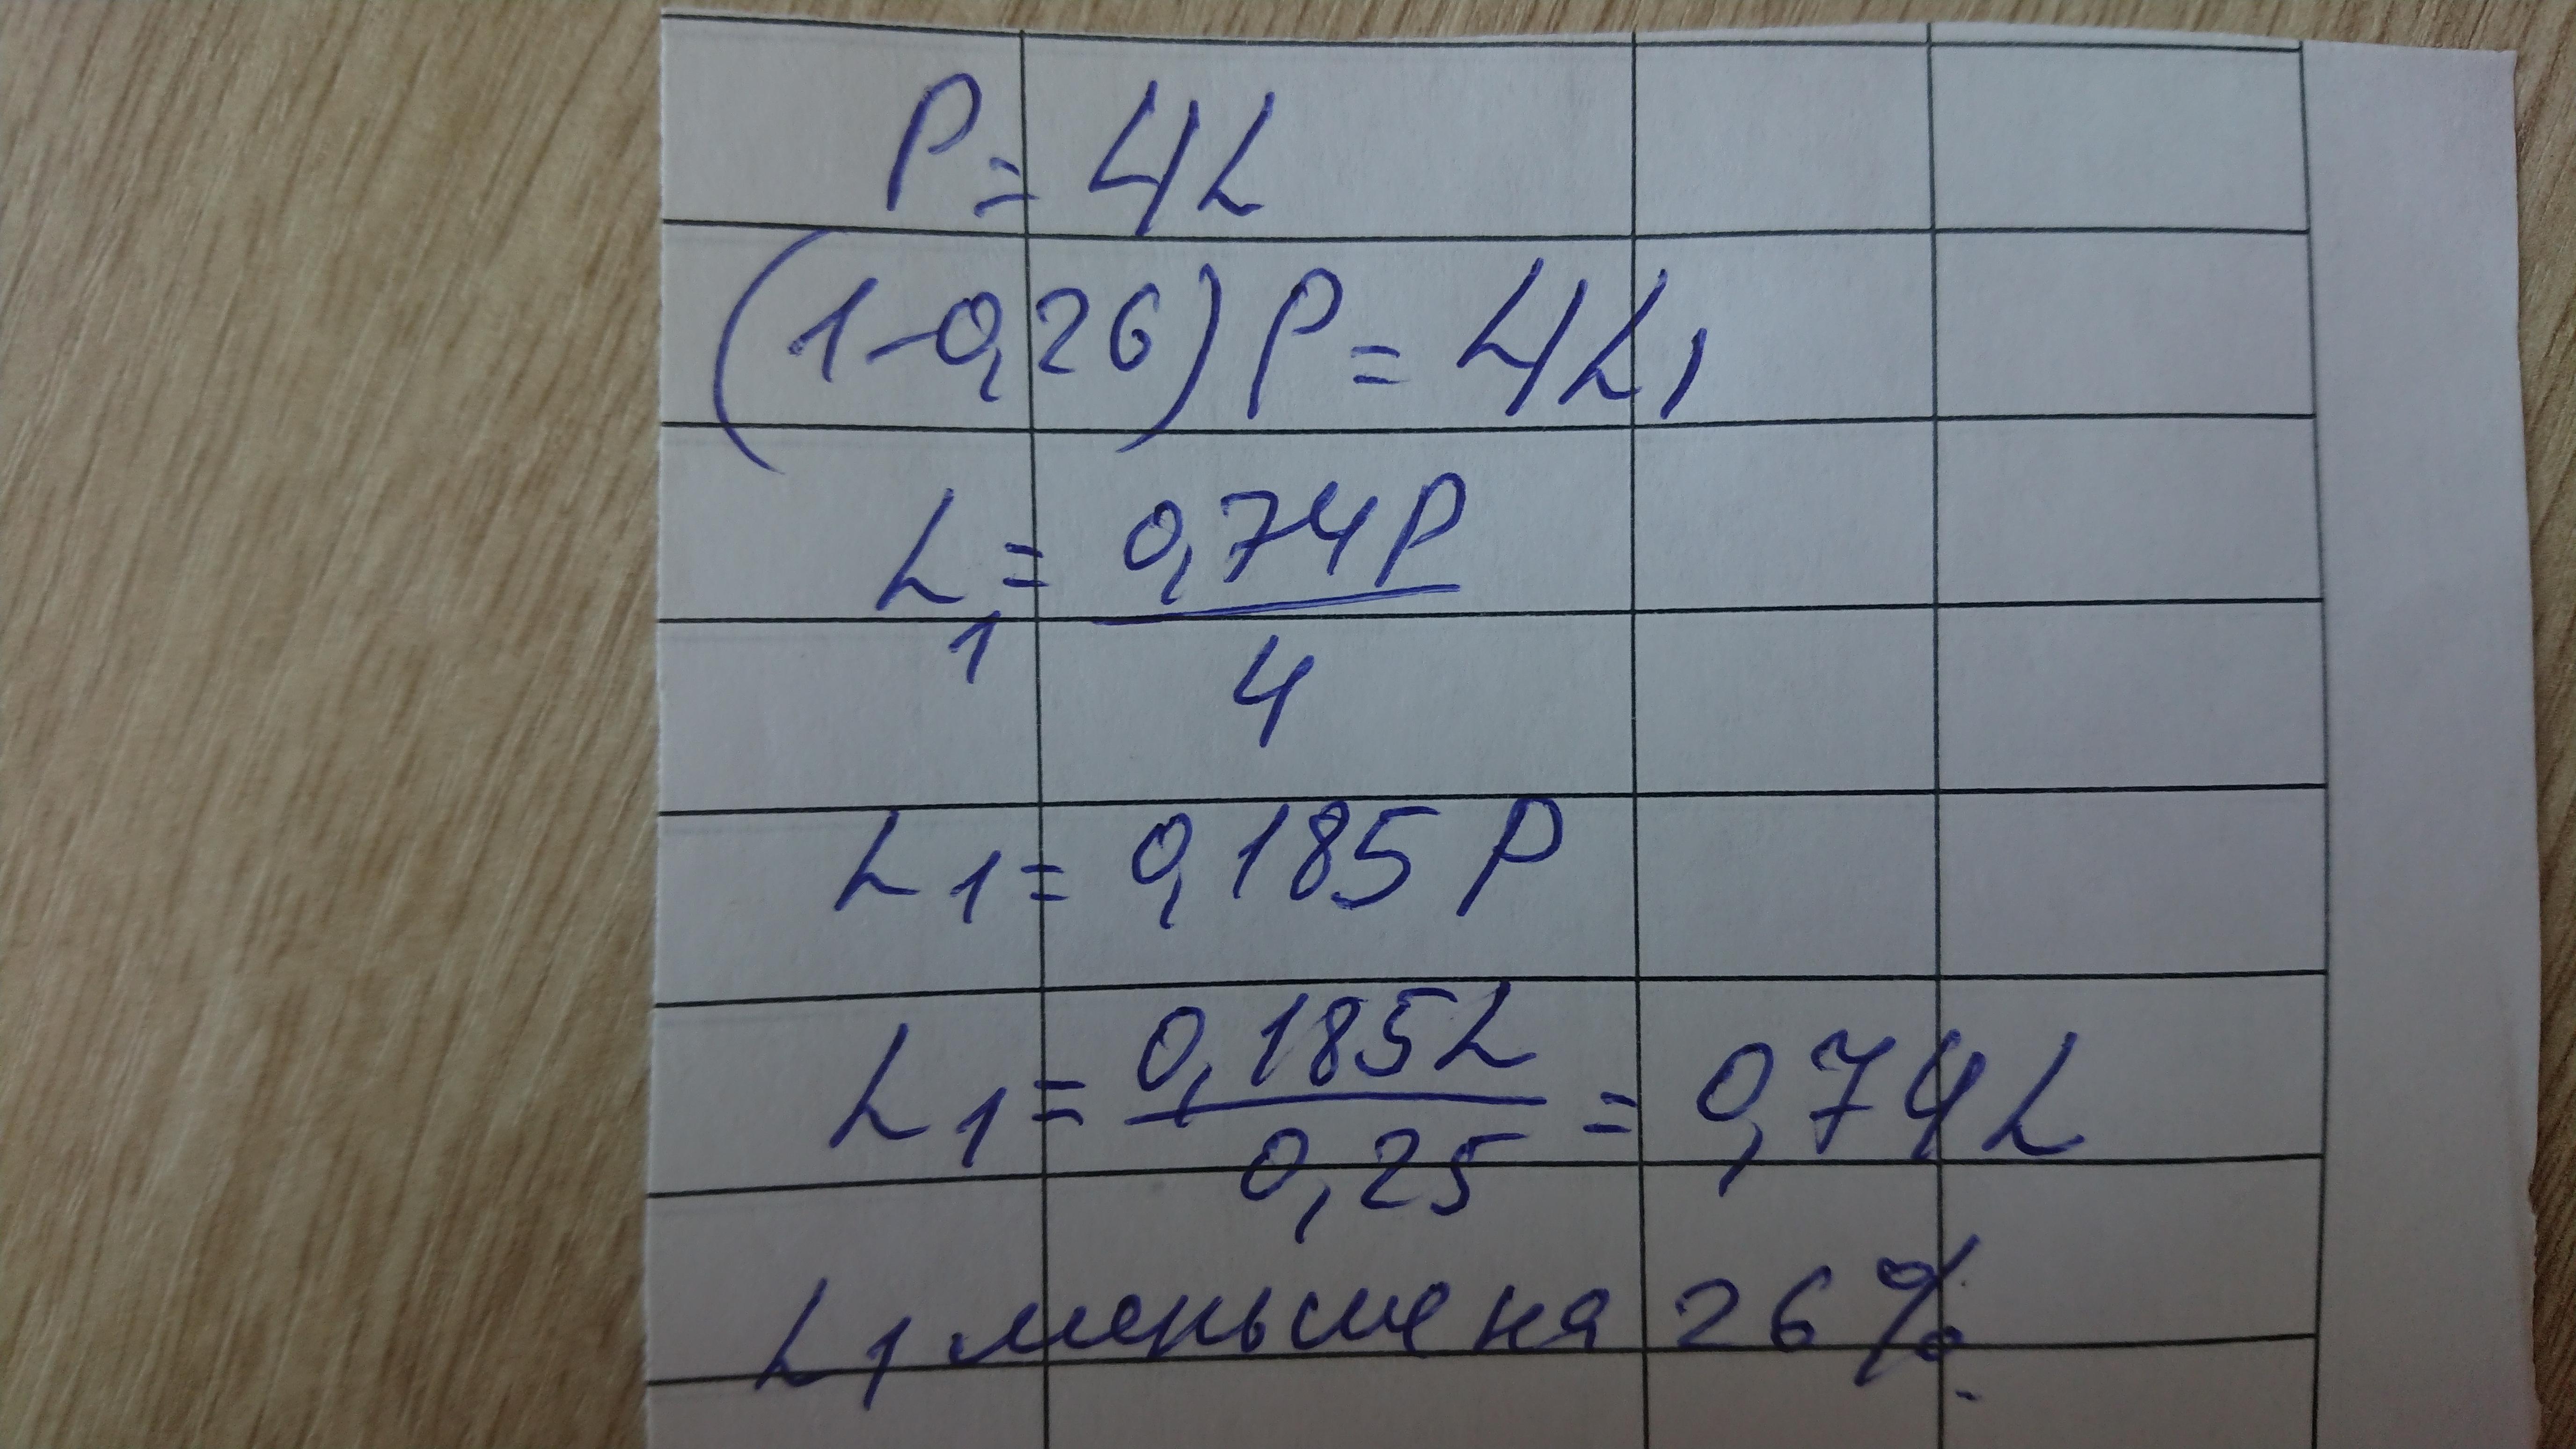 P = 4L
(1-0,26)P = 4L1
L1 = 0,74P / 4
L1 = 0,185 P
L1 = 0,185L / 0,25 = 0,74L
L1 меньше на 26%.